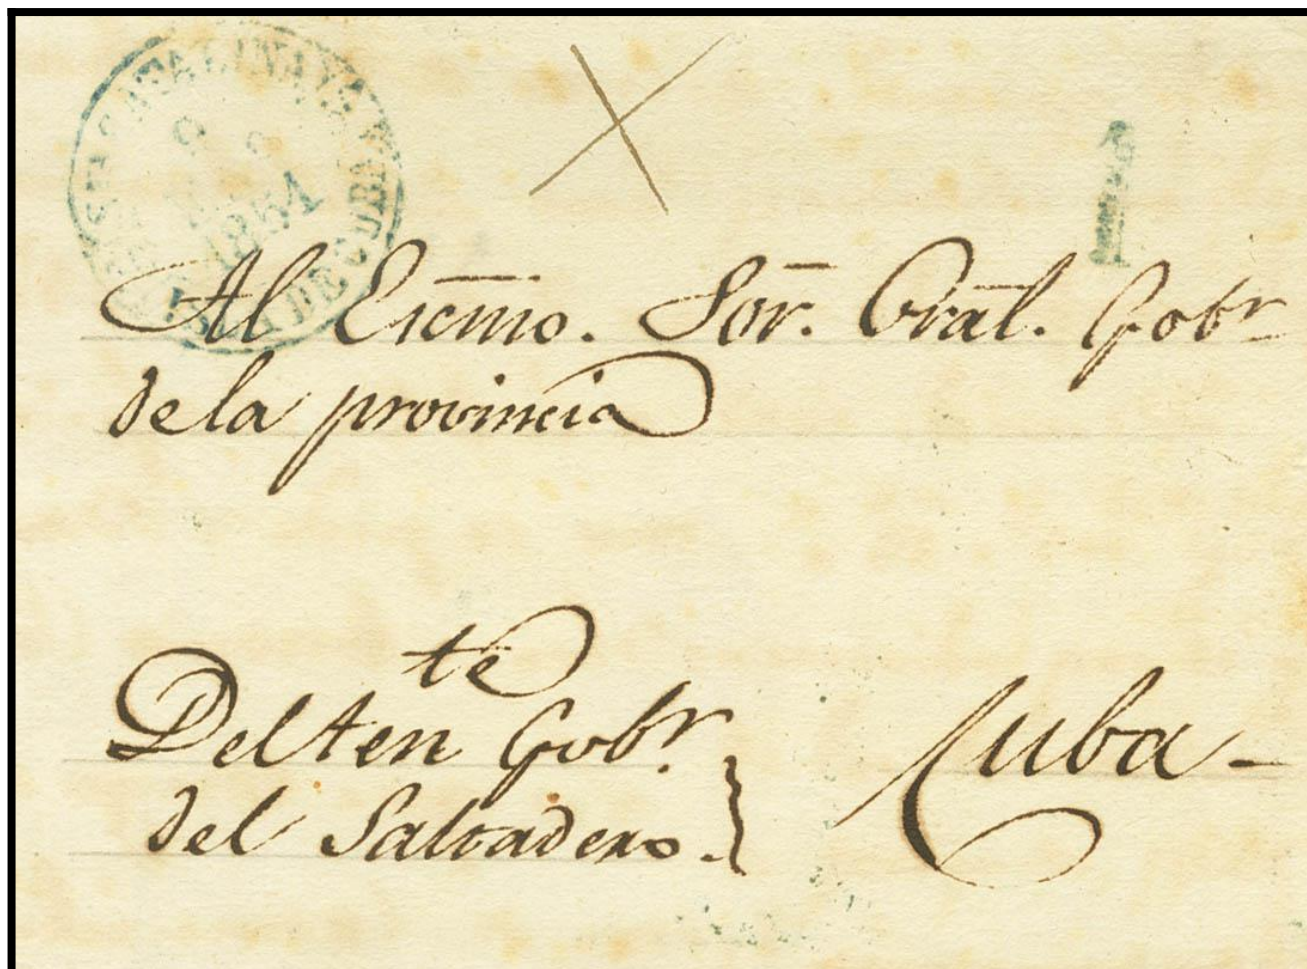 STA CATALINA
ISLA DE CUBA
1854
1
Al Excmo. Sor. Gral. Gobr
de la provincia
Del tente Gobr.
del Saltadero.
Cuba-